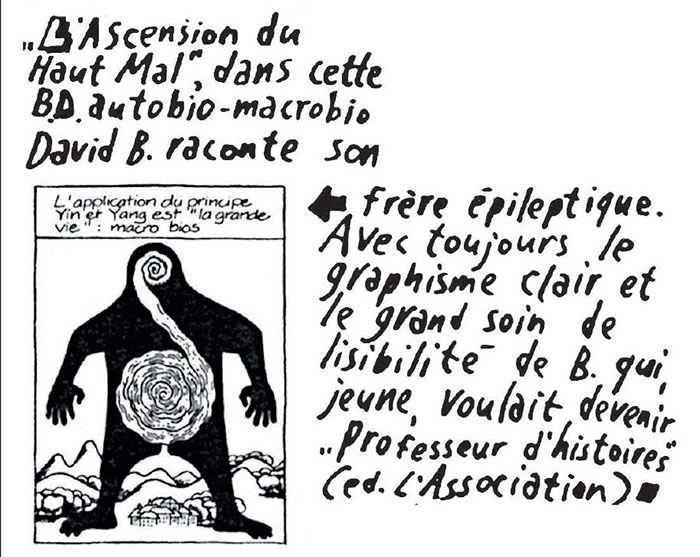 „L'Ascension du
Haut Mal", dans cette
B.D. autobio-macrobio
David B. raconte son
L'application du principe
Yin et Yang est "la grande
vie" : macro bios
← frère épileptique.
Avec toujours le
graphisme clair et
le grand soin de
lisibilité de B. qui,
jeune, voulait devenir
„Professeur d'histoires"
(ed. L'Association) ■